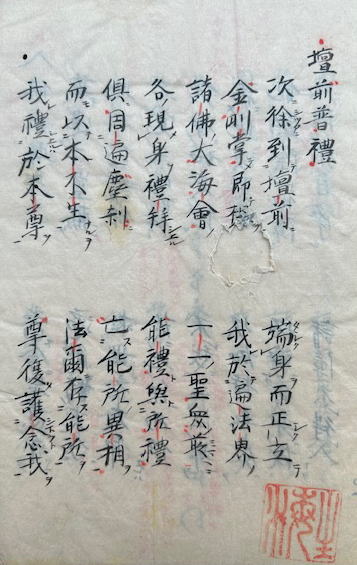 壇前普禮
次徐到壇前 端身而正立
金剛掌即 我於遍法界
諸佛大海會 一一聖衆前
各現身禮拜 能禮與所禮
俱周遍塵刹 亡能所異相
而以本不生 法爾存能所
我禮於本尊 尊復護念我